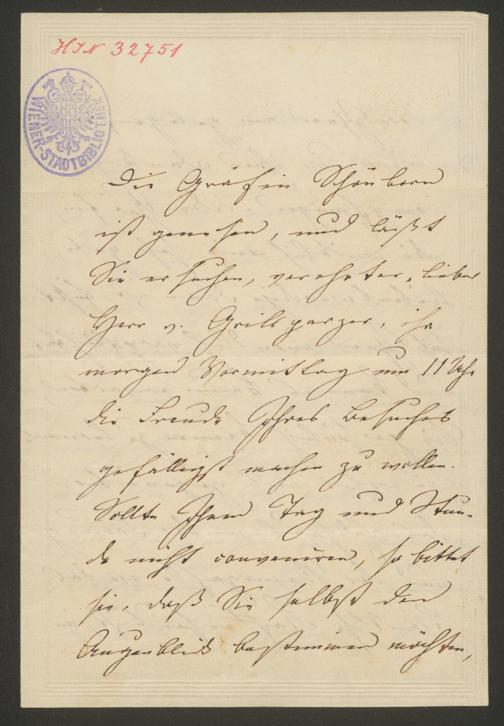 HIN 32751
WIENER-STADTBIBLIOTHEK
Die Gräfin Schönborn
ist genesen, und läßt
Sie ersuchen, verehrter, lieber
Herr v. Grillparzer, ihr
morgen Vormittag um 11 Uhr
die Freude Ihres Besuches
gefälligst machen zu wollen.
Sollte Ihnen Tag und Stun-
de nicht conveniren, so bittet
sie, daß Sie selbst den
Augenblick bestimmen möchten,